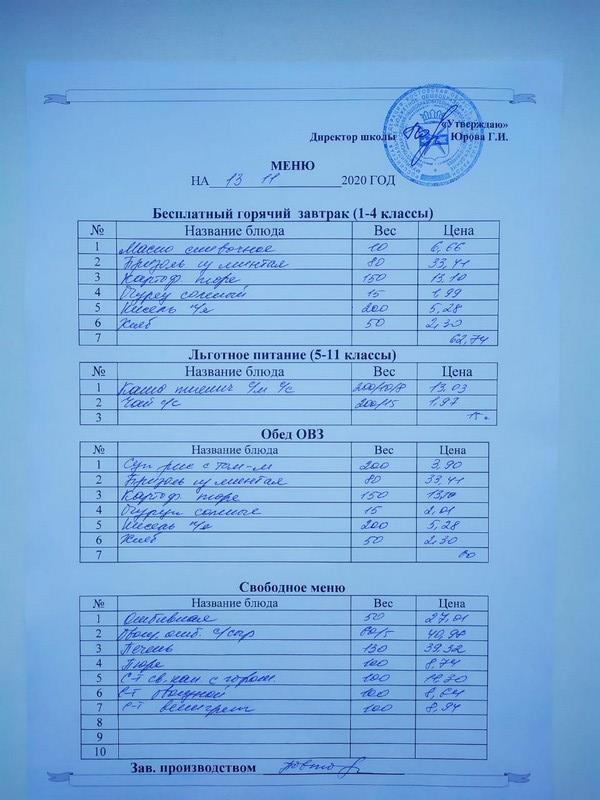 «Утверждаю»
Директор школы Юрова Г.И.
МЕНЮ
НА 13 11 2020 ГОД
Бесплатный горячий завтрак (1-4 классы)
№ Название блюда Вес Цена
1 Масло сливочное 10 6,66
2 Биточ из минтая 80 33,41
3 Картоф пюре 150 13,10
4 Огурец соленый 15 1,99
5 Кисель п/я 200 5,28
6 Хлеб 50 2,30
7 62,74
Льготное питание (5-11 классы)
№ Название блюда Вес Цена
1 Каша пшенич 13,03
2 Чай с/с 200/15 1,97
3 15=
Обед ОВЗ
№ Название блюда Вес Цена
1 Суп рис с том-м 200 3,90
2 из минтая 80 33,41
3 Картоф пюре 150 13,10
4 Огурцы соленые 15 2,01
5 Кисель п/я 200 5,28
6 Хлеб 50 2,30
7 60
Свободное меню
№ Название блюда Вес Цена
1 Отбивная 50 27,01
2 с/сыр 80/5
3 Печень 130 39,32
4 Пюре 100 8,74
5 С-т св. кап с горош 100
6 С-т овощной 100 8,64
7 С-т винегрет 100 8,94
8
9
10
Зав. производством